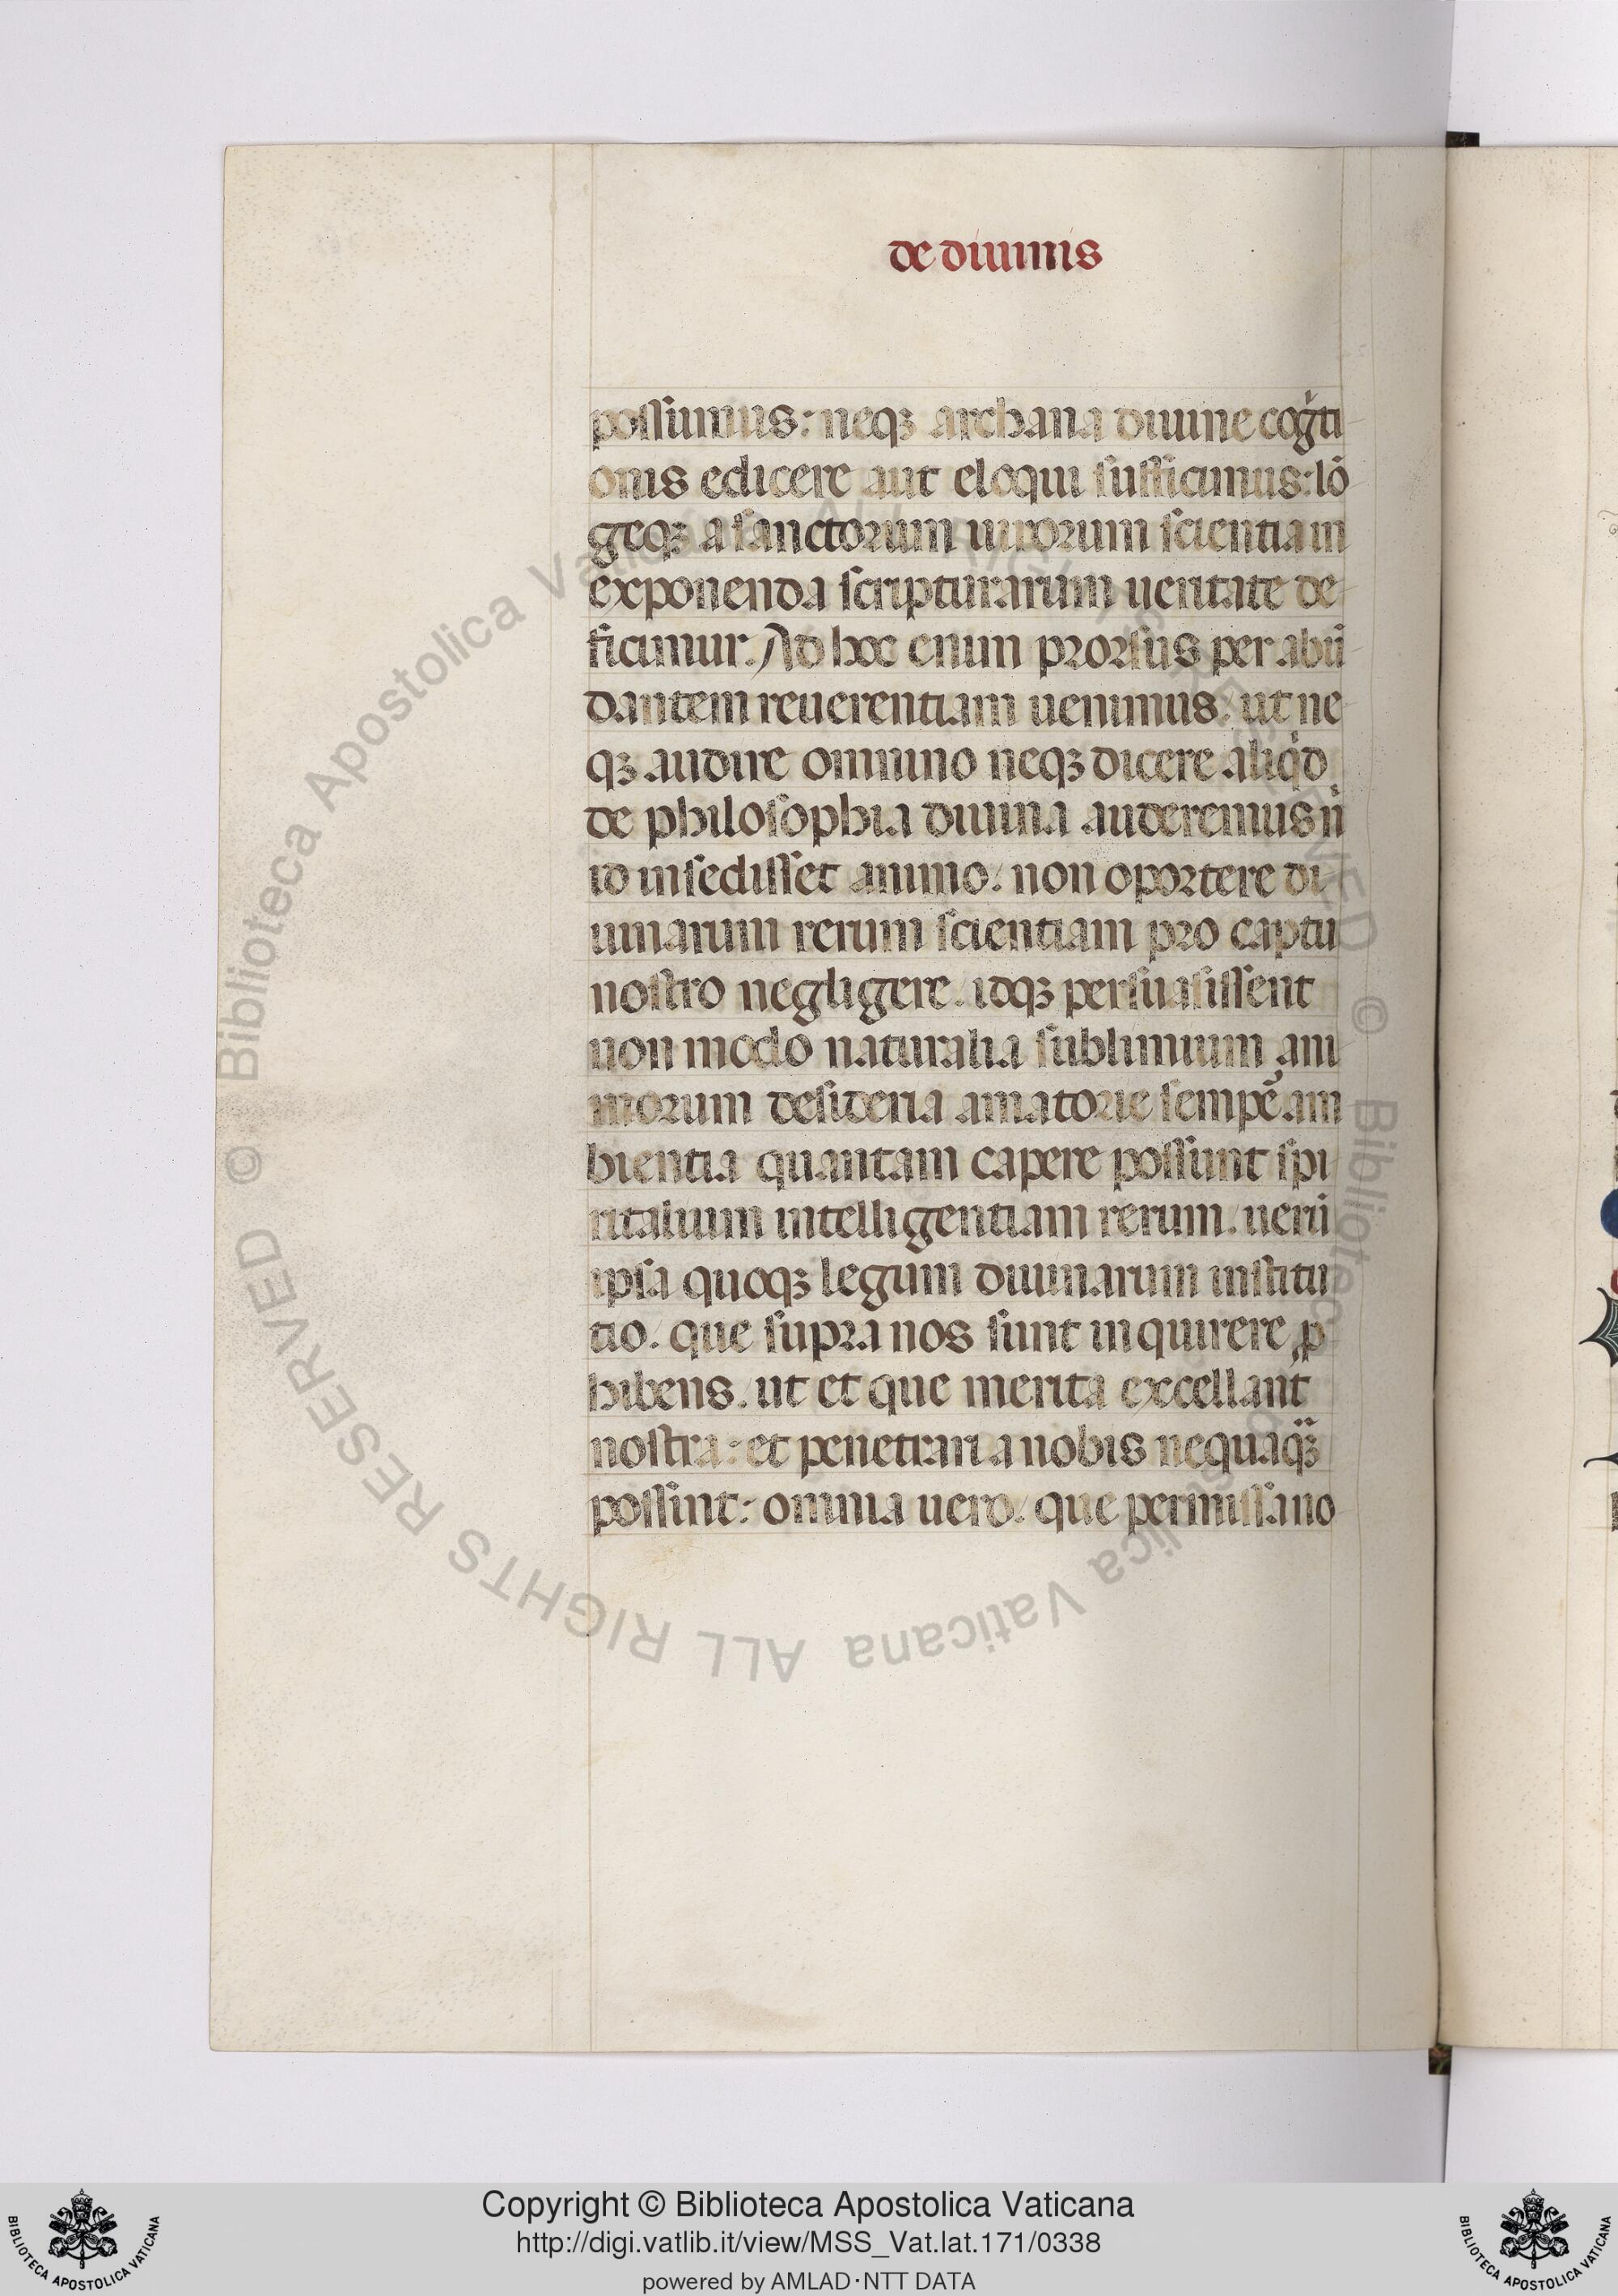 de diuinis
possumus: neqȝ archana diuine cogͥti
onis edicere aut eloqui sufficimus: lō
geqȝ a sanctorum uirorum scientia in
exponenda scripturarum ueritate de
ficimur. Ad hoc enim prorsus per abū
dantem reuerentiam uenimus. ut ne
qȝ audire omnino neqȝ dicere aliqͥd
de philosophia diuina auderemus nͥ
id insedisset animo. non oportere di
uinarum rerum scientiam pro captu
nostro negligere. idqȝ persuasissent
non modo naturalia sublimium ani
morum desideria amatorie sempe᷒ am
bientia quantam capere possunt spi
ritalium intelligentiam rerum. uerū
ipsa quoqȝ legum diuinarum institu
tio. que supra nos sunt inquirere ꝓ
hibens. ut et que merita excellant
nostra: et penetrari a nobis nequaqȝ̃
possint: omnia uero. que permissa no
Copyright © Biblioteca Apostolica Vaticana
http://digi.vatlib.it/view/MSS_Vat.lat.171/0338
powered by AMLAD·NTT DATA
BIBLIOTECA APOSTOLICA VATICANA
BIBLIOTECA APOSTOLICA VATICANA